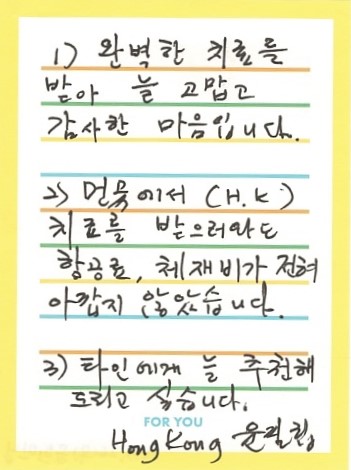 1) 완벽한 치료를
받아 늘 고맙고
감사한 마음입니다.
2) 먼 곳에서 (H.K)
치료를 받으러와도
항공료, 체재비가 전혀
아깝지 않았습니다.
3) 타인에게 늘 추천해
드리고 싶습니다.
FOR YOU
Hong Kong 윤필립